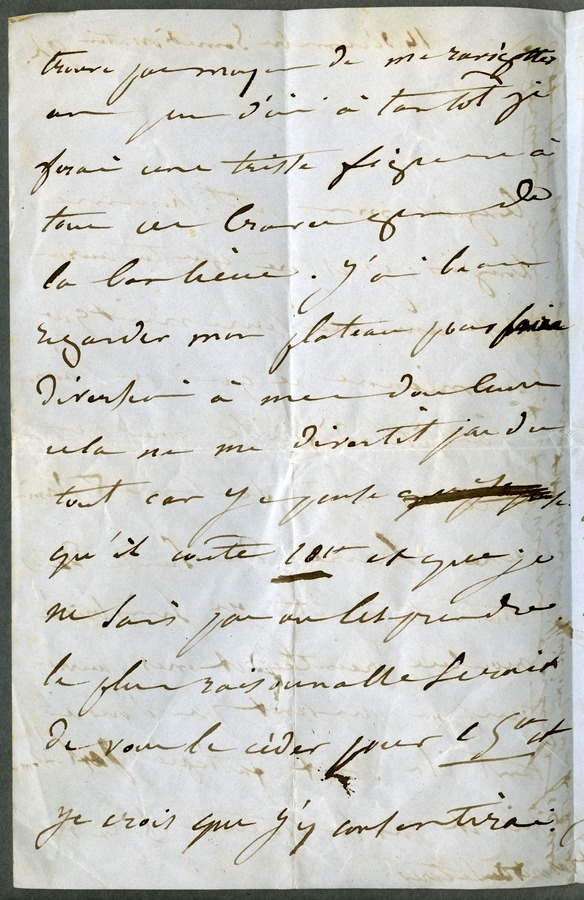 trouve pas moyen de me ravigotter
un peu d'ici à tantôt je
ferai une triste figure à
tous ces braves gens de
la banlieue. J'ai beau
regarder mon plateau pour faire
diversion à mes douleurs
cela ne me divertit pas du
tout car je pense
qu'il coûte et que je
ne sais pas où les prendre
le plus raisonnable serait
de vous le céder pour et
je crois que j'y consentirai.